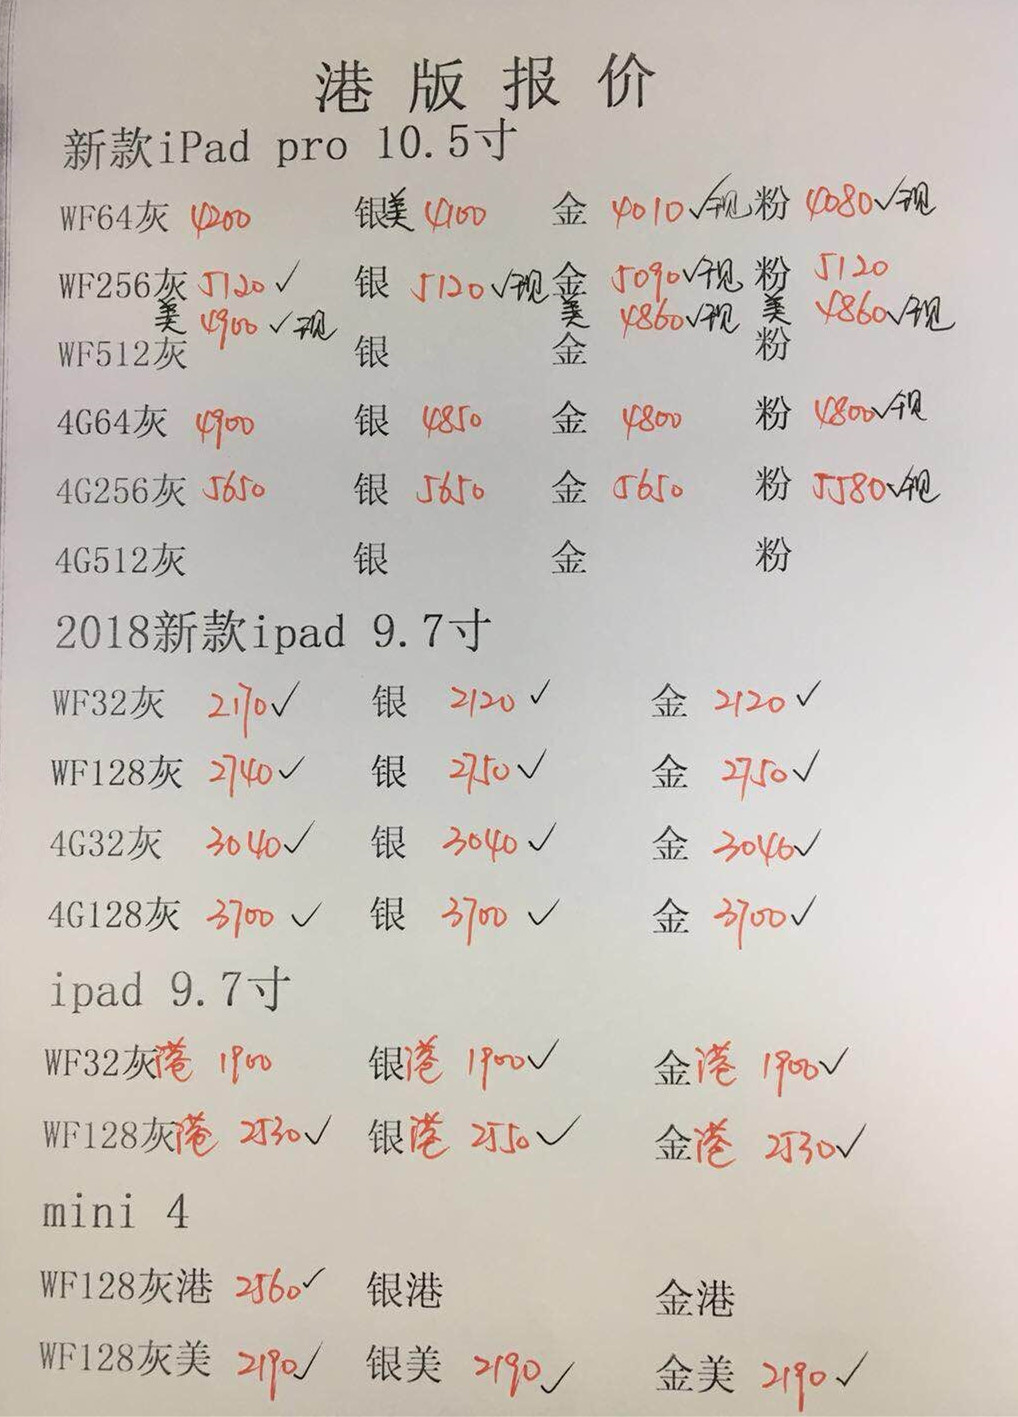 港版报价
新款iPad pro 10.5寸
WF64灰 4200 银美 4100 金 4010✓现 粉 4080✓现
WF256灰 5120✓ 银 5120✓现 金 5090✓现 粉 5120
美 4900✓现 美 4860✓现 美 4860✓现
WF512灰 银 金 粉
4G64灰 4900 银 4850 金 4800 粉 4800✓现
4G256灰 5650 银 5650 金 5650 粉 5580✓现
4G512灰 银 金 粉
2018新款ipad 9.7寸
WF32灰 2170✓ 银 2120✓ 金 2120✓
WF128灰 2740✓ 银 2750✓ 金 2750✓
4G32灰 3040✓ 银 3040✓ 金 3040✓
4G128灰 3700✓ 银 3700✓ 金 3700✓
ipad 9.7寸
WF32灰港 1900 银港 1900✓ 金港 1900✓
WF128灰港 2530✓ 银港 2550✓ 金港 2530✓
mini 4
WF128灰港 2560✓ 银港 金港
WF128灰美 2190✓ 银美 2190✓ 金美 2190✓